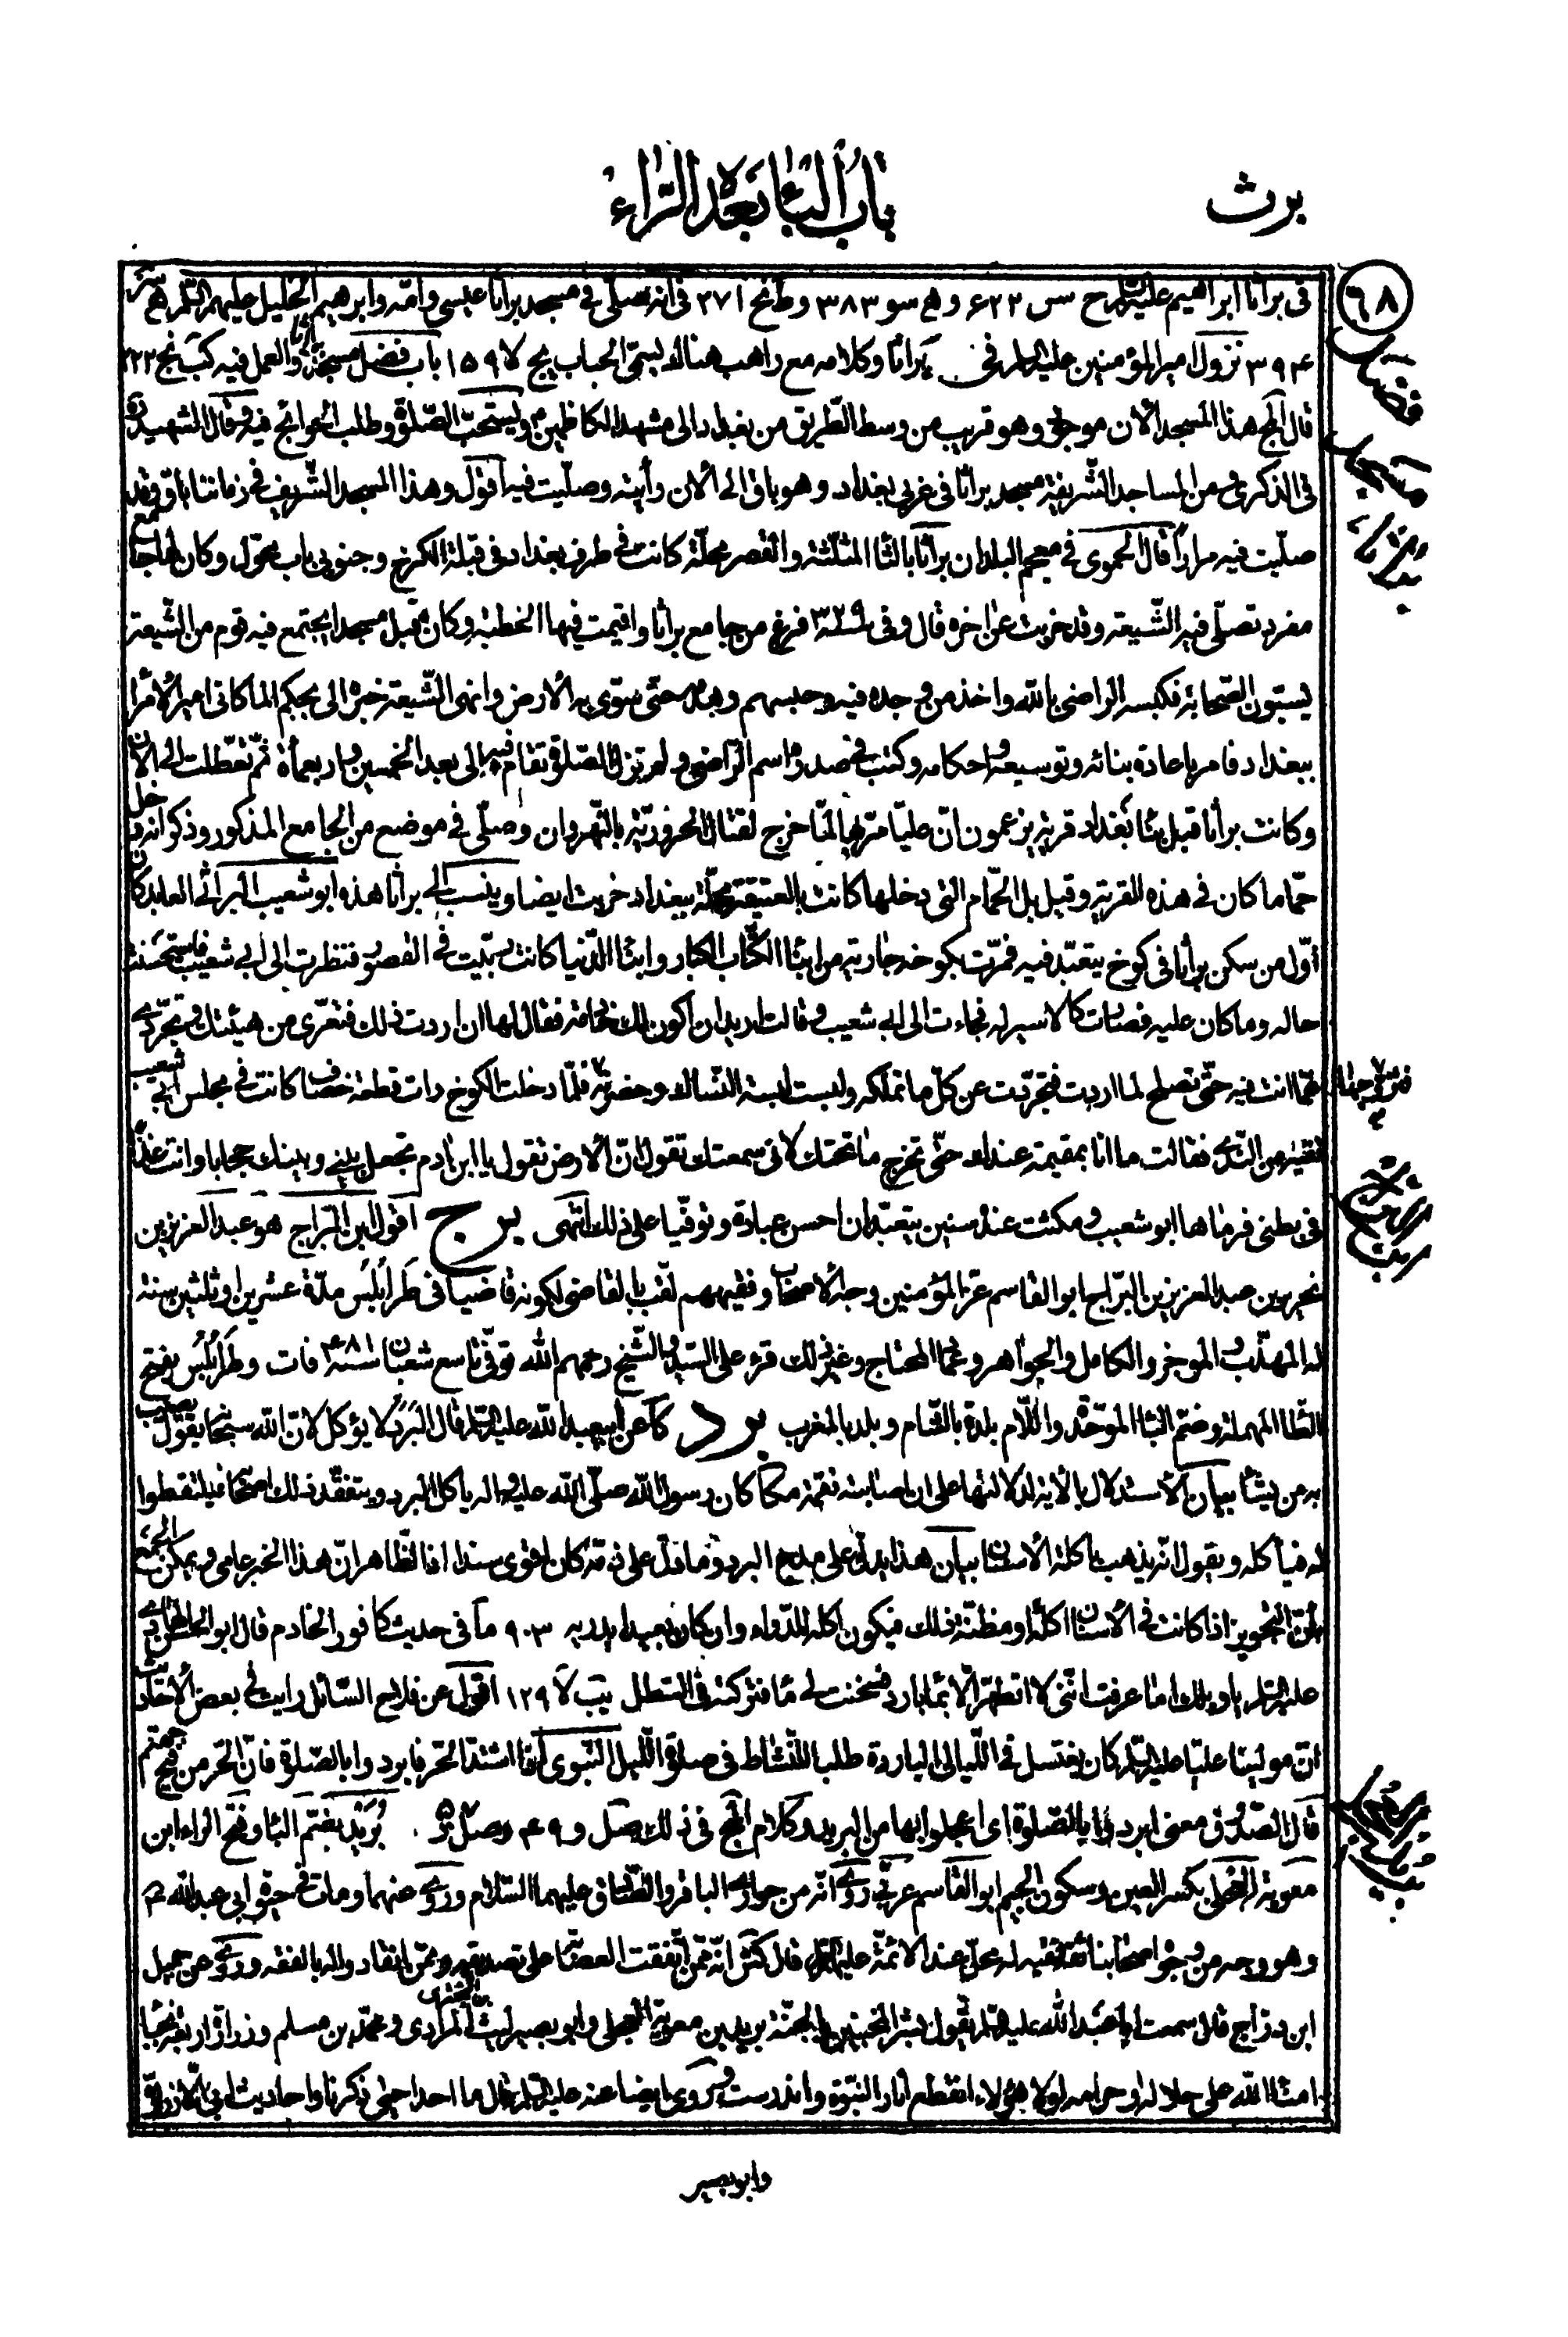 برث
باب الباء بعد الراء
٦٨
فى براثا ابراهيم عليه السلام ح س ٦٢٣ و مع سو ٣٨٣ و ط نج ٢٧١ فى انه صلّى فى مسجد براثا عيسى وامّه وابرهيم الخليل عليهم السّلم مع
٣٩٤ نزول امير المؤمنين عليه السلام فى براثا وكلامه مع راهب هناك يسمّى الحباب يج لا ١٥٩ باب فضل مسجد براثا والعمل فيه كب نج ٢٢٣
قال المج هذا المسجد الان موجود وهو قريب من وسط الطريق من بغداد الى مشهد الكاظمين ويستحبّ الصّلوة وطلب الحوائج فيه وقال الشهيد ره
فى الذكرى ومن المساجد الشّريفة مسجد براثا فى غربى بغداد وهو باق الى الان رأيته وصلّيت فيه اقول وهذا المسجد الشّريف فى زماننا باق وقد
صلّيت فيه مرارا قال الحموى فى معجم البلدان براثا بالثا المثلّثة والقصر محلّة كانت فى طرف بغداد فى قبلة الكرخ وجنوبى باب محوّل وكان لها جامع
مفرد تصلّى فيه الشّيعة وقد خربت عن اخره قال وفى سنة ٣٢٩ فرغ من جامع براثا واقيمت فيها الخطبة وكان قبل مسجدا يجتمع فيه قوم من الشّيعة
يسبّون الصّحابة فكبسه الراضى بالله واخذ من وجده فيه وحبسهم وهدمه حتى سوّى به الارض وانهى الشّيعة خبره الى بجكم الماكانى امير الامرا
ببغداد فامر باعادة بنائه وتوسيعه واحكامه وكتب فى صدره اسم الرّاضى ولم تزل الصّلوة تقام فيه الى بعد الخمسين واربعمأة ثمّ تعطّلت الى الان
وكانت براثا قبل بناء بغداد قرية يزعمون انّ عليّا مرّ بها لمّا خرج لقتال الحروريّة بالنّهروان وصلّى فى موضع من الجامع المذكور وذكر انه دخل
حمّاما كان فى هذه القرية وقيل بل الحمّام التى دخلها كانت بالعتيقة محلّة ببغداد خربت ايضا وينسب الى براثا هذه ابو شعيب البراثى العابد كان
اوّل من سكن براثا فى كوخ يتعبّد فيه فمرّت بكوخه جارية من ابناء الكتّاب الكبار وابناء الدّنيا كانت ربّيت فى القصور فنظرت الى ابى شعيب فاستحسنت
حاله وما كان عليه فصارت كالاسير له فجاءت الى ابى شعيب وقالت اريد ان اكون لك خادمة فقال لها ان اردت ذلك فتعرّى من هيئتك وتجرّدى
عمّا انت فيه حتّى تصلح لما اردت فتجرّدت عن كلّ ما تملكه ولبست لبسة النّسّاك وحضرته فتزوّجها فلمّا دخلت الكوخ رات قطعة خصاف كانت فى مجلس ابى شعيب
تقيه من النّدى فقالت ما انا بمقيمة عندك حتّى تخرج ما تحتك لانى سمعتك تقول انّ الارض تقول يا ابن ادم تجعل بينى وبينك حجابا وانت غدا
فى بطنى فرماها ابو شعيب ومكثت عنده سنين يتعبّدان احسن عبادة وتوفّيا على ذلك انتهى برج اقول ابن البرّاج هو عبد العزيز بن
نحرير بن عبد العزيز بن البرّاج ابو القاسم عزّ المؤمنين وجه الاصحاب وفقيههم لقّب بالقاضى لكونه قاضيا فى طرابلس مدّة عشرين او ثلثين سنة
له المهذّب والموجز والكامل والجواهر وعماد المحتاج وغير ذلك قرء على السّيّد والشّيخ رحمهم الله توفّى تاسع شعبان سنة ٤٨١ فات وطرابلس بفتح
الطّاء المهملة وضمّ الباء الموحّدة واللّام بلدة بالشّام وبلد بالمغرب برد كا عن ابيعبد الله عليه السّلم قال البرد لا يؤكل لانّ الله سبحانه يقول يصيب
به من يشاء بيان الاستدلال بالاية لدلالتها على ان اصابته نقمة مكا كان رسول الله صلّى الله عليه واله ياكل البرد ويتفقّد ذلك اصحابه فيلتقطوا
له فيأكله ويقول انّه يذهب باكلة الاسنان بيان هذا يدلّ على مدح البرد وما دلّ على ذمّه كان اقوى سندا اذ الظّاهر انّ هذا الخبر عامى ويمكن الجمع
بانّ التجويز اذا كانت فى الاسنان اكلة او مظنّة ذلك فيكون اكله للدّواء وان كان بعيدا يد ربه ٩٠٣ ما فى حديث كافور الخادم قال ابو الحسن الهادى
عليه السّلم ياويلك اما عرفت انّنى لا اتطهّر الّا بماء بارد فسخنت لى ماء فتركته فى السّطل يب لا ١٢٩ اقول عن فلاح السّائل رايت فى بعض الاحاديث
انّ مولينا عليّا عليه السّلم كان يغتسل فى اللّيالى الباردة طلبا للنّشاط فى صلوة اللّيل النّبوى اذا اشتدّ الحرّ فابردوا بالصّلوة فانّ الحرّ من فيح جهنّم
قال الصّدوق معنى ابردوا بالصّلوة اى اعجلوا بها من البريد كلام المج فى ذلك صل و ٤٩ بريد بضمّ الباء وفتح الراء ابن
معوية العجلى بكسر العين وسكون الجيم ابو القاسم عربى روى انّه من حوارى الباقر والصّادق عليهما السّلام وروى عنهما ومات فى حيوة ابى عبد الله ع
وهو وجه من وجوه اصحابنا ثقة فقيه له محلّ عند الائمّة عليهم السّلم قال كش انّه ممّن اتّفقت العصابة على تصديقه وممّن انقادوا له بالفقه وروى عن جميل
ابن درّاج قال سمعت ابا عبد الله عليه السّلم يقول بشّر المخبتين بالجنّة بريد بن معوية العجلى وابو بصير ليث بن البخترى المرادى ومحمّد بن مسلم وزرارة اربعة نجباء
امناء الله على حلاله وحرامه لولا هؤلاء انقطع اثار النبوّة واندرست وروى ايضا عنه عليه السّلم قال ما احد احيى ذكرنا واحاديث ابى الّا زرارة
وابو بصير
فضل
مسجد
براثا
فتزوّجها
ابن البرّاج
بريد العجلى